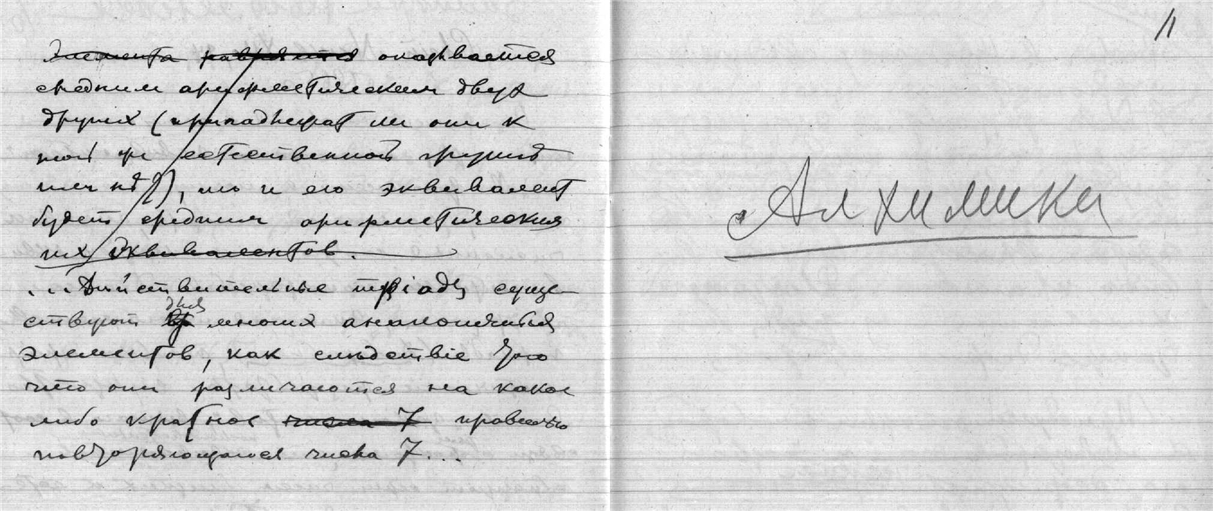 элемента равняется оказывается
средним арифметическим двух
других (принадлежат ли они к
той же естественной группѣ
или нѣт), то и его эквивалент
будет средним арифметическим
их эквивалентов.
... Дѣйствительные тріады суще-
ствуют для многих аналогичных
элементов, как слѣдствіе того
что они различаются на какое
либо кратное числа 7 правильно
повторяющагося числа 7...
11
Алхимики